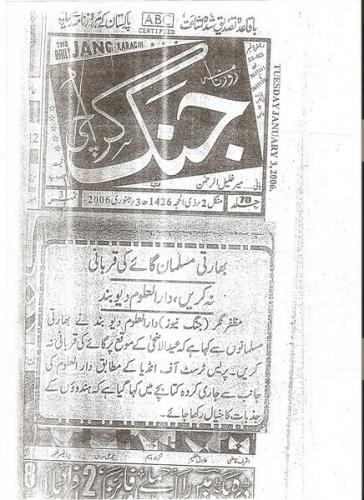 باقاعدہ تصدیق شدہ اشاعت
ABC
CERTIFIED
THE DAILY JANG KARACHI
TUESDAY JANUARY 3, 2006.
روزنامہ
جنگ
کراچی
بانی میر خلیل الرحمٰن
جلد 70 منگل 2 ذی الحجہ 1426ھ 3 جنوری 2006 نمبر 3
بھارتی مسلمان گائے کی قربانی
نہ کریں، دارالعلوم دیوبند
مظفر نگر (جنگ نیوز) دارالعلوم دیوبند نے بھارتی
مسلمانوں سے کہا ہے کہ عیدالاضحیٰ کے موقع پر گائے کی قربانی نہ
کریں۔ پریس ٹرسٹ آف انڈیا کے مطابق دارالعلوم کی
جانب سے جاری کردہ کتابچے میں کہا گیا ہے کہ ہندوؤں کے
جذبات کا خیال رکھا جائے۔